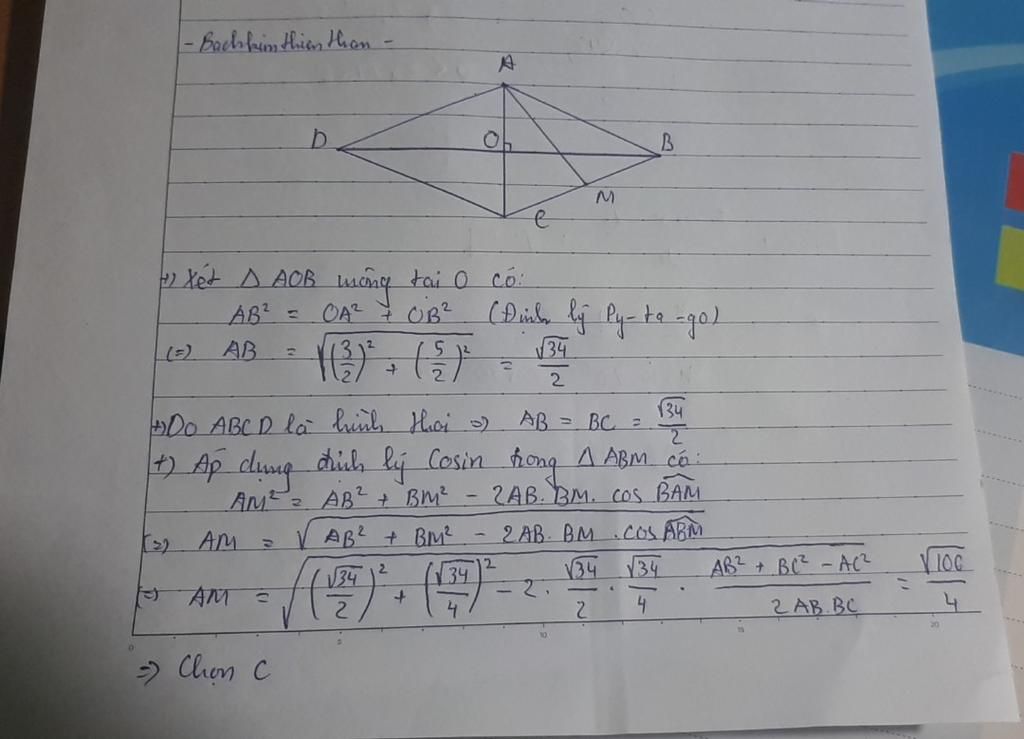 - Bachkimthienthan -
A
D
O
B
M
C
+) Xét Δ AOB vuông tại O có:
AB² = OA² + OB² (Định lý Py-ta-go)
(=) AB = √((3/2)² + (5/2)²) = √34/2
+) Do ABCD là hình thoi => AB = BC = √34/2
+) Áp dụng định lý Cosin trong Δ ABM có:
AM² = AB² + BM² - 2AB.BM.cos BAM
(=) AM = √(AB² + BM² - 2AB.BM.cos ABM)
(=) AM = √((√34/2)² + (√34/4)² - 2.√34/2.√34/4.(AB² + BC² - AC²)/(2AB.BC)) = √106/4
0 5 10 15 20
=> Chọn C